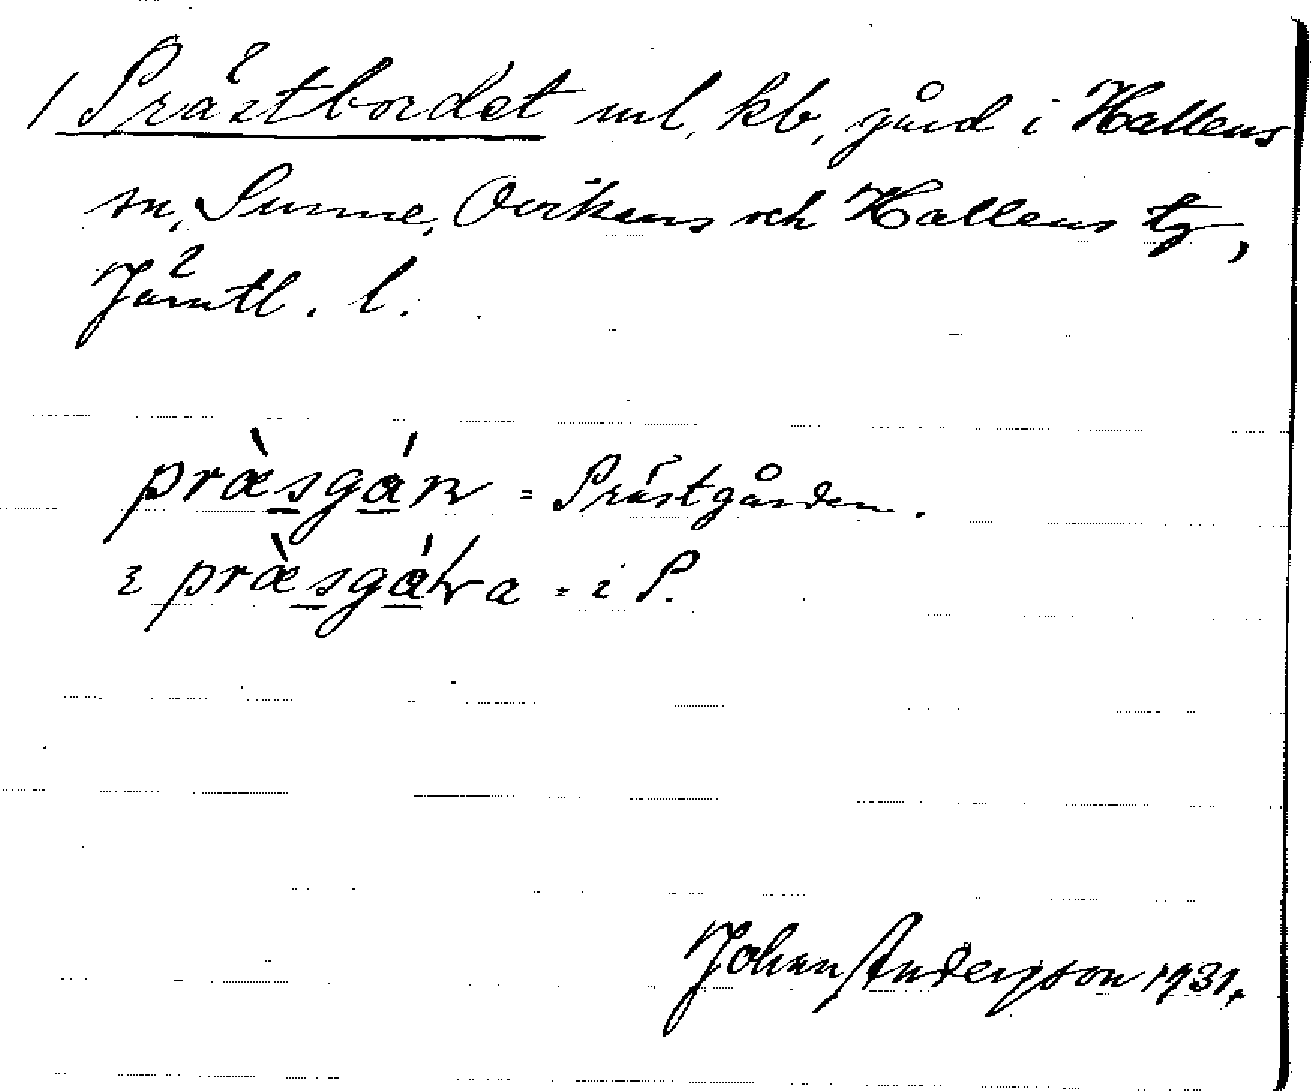 1 Prästbordet ml, kb, gård i Hallens
sn, Sunne, Ovikens och Hallens tg,
Jämtl. l.
præ̀sgán = Prästgården.
i præ̀sgáɽa = i P.
Johan Andersson 1931.